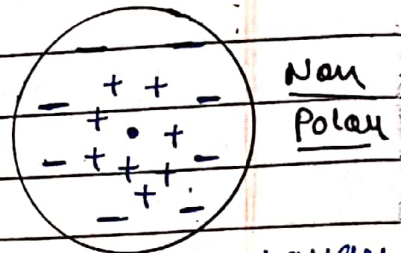 − −
+ +
− −
+ +
− + + + −
+
− −
Non
Polar